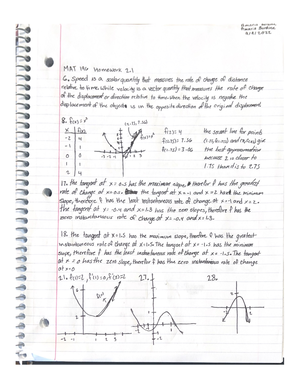 MAT 196 Homework 2.1
6. Speed is a scalar quantity that measures the rate of change of distance
relative to time. while velocity is a vector quantity that measures the rate of change
of the displacement or direction relative to time. when the velocity is negative the
displacement of the object is in the opposite direction of the original displacement.
8. f(x)=x²
x f(x)
-2 4
-1 1
0 0
1 1
2 4
the secant line for points
the best approximation
because 2 is closer to
1.75 than it is to 2.75
17. the tangent at x = 0.5 has the maximum slope, therefore f has the greatest
rate of change at x=0.5. the tangent at x = -1 and x = 2 have the minimum
slope, therefore f has the least instantaneous rate of change at x=-1 and x=2.
The tangent at x = -0.4 and x=1.5 has zero slopes, therefore f has the
zero instantaneous rate of change at x=-0.4 and x=1.5.
18. the tangent at x=1.5 has the maximum slope, therefore f has the greatest
instantaneous rate of change at x=1.5. The tangent at x = -1.2 has the minimum
slope, therefore f has the least instantaneous rate of change at x=-1.2. The tangent
at x = 0 has the zero slope, therefore f has the zero instantaneous rate of change
at x=0
27.
28.